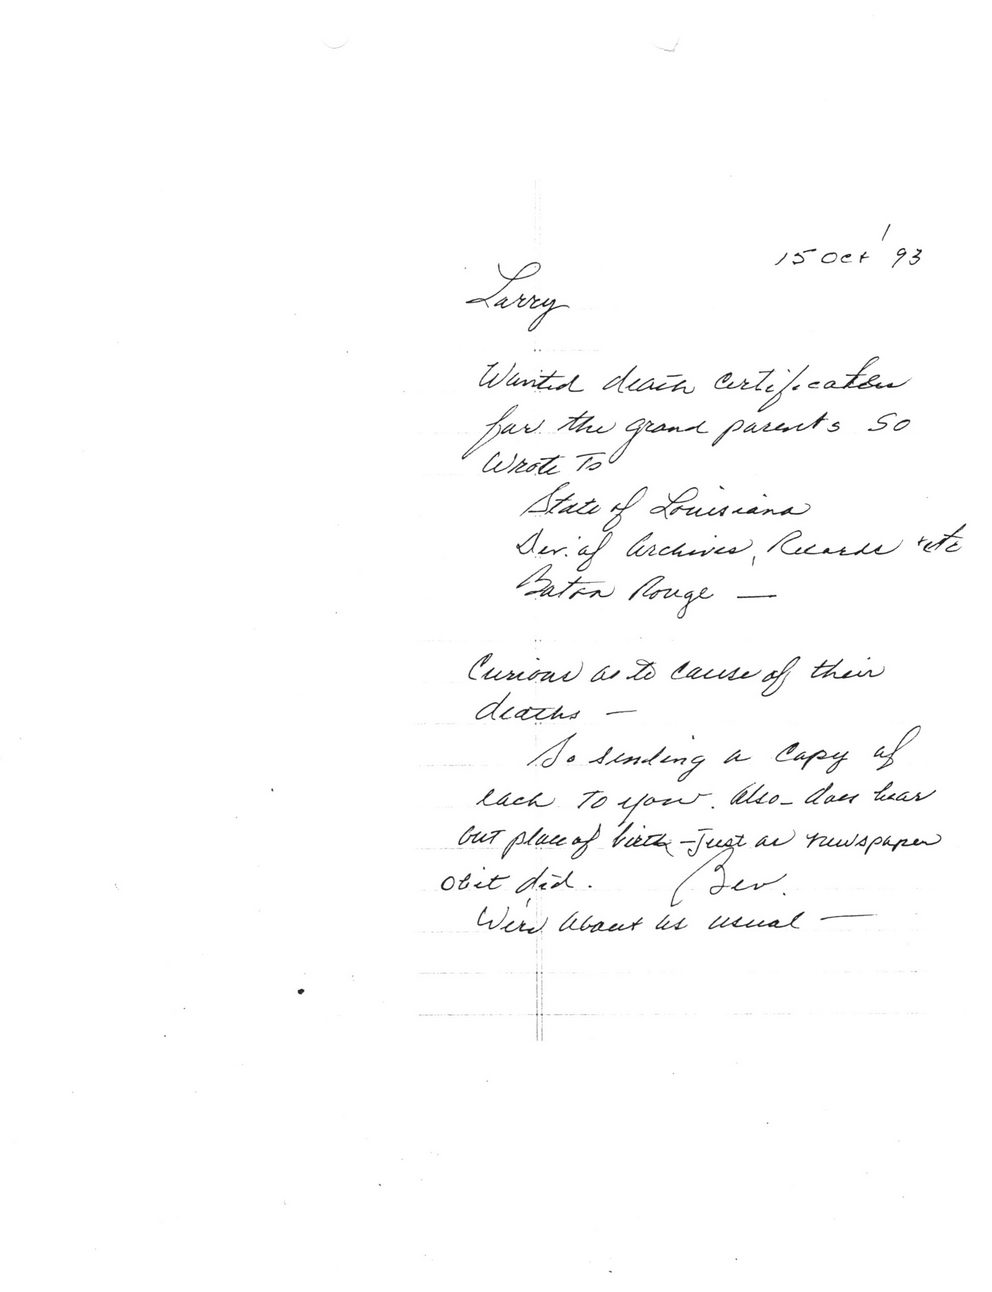 15 Oct '93
Larry
Wanted death certificates
for the grand parents so
wrote to
State of Louisiana
Div. of Archives, Records + etc
Baton Rouge —
Curious as to cause of their
deaths —
So sending a copy of
each to you. Also - does bear
out place of birth - Just as newspaper
obit did. Bev.
We're about as usual —